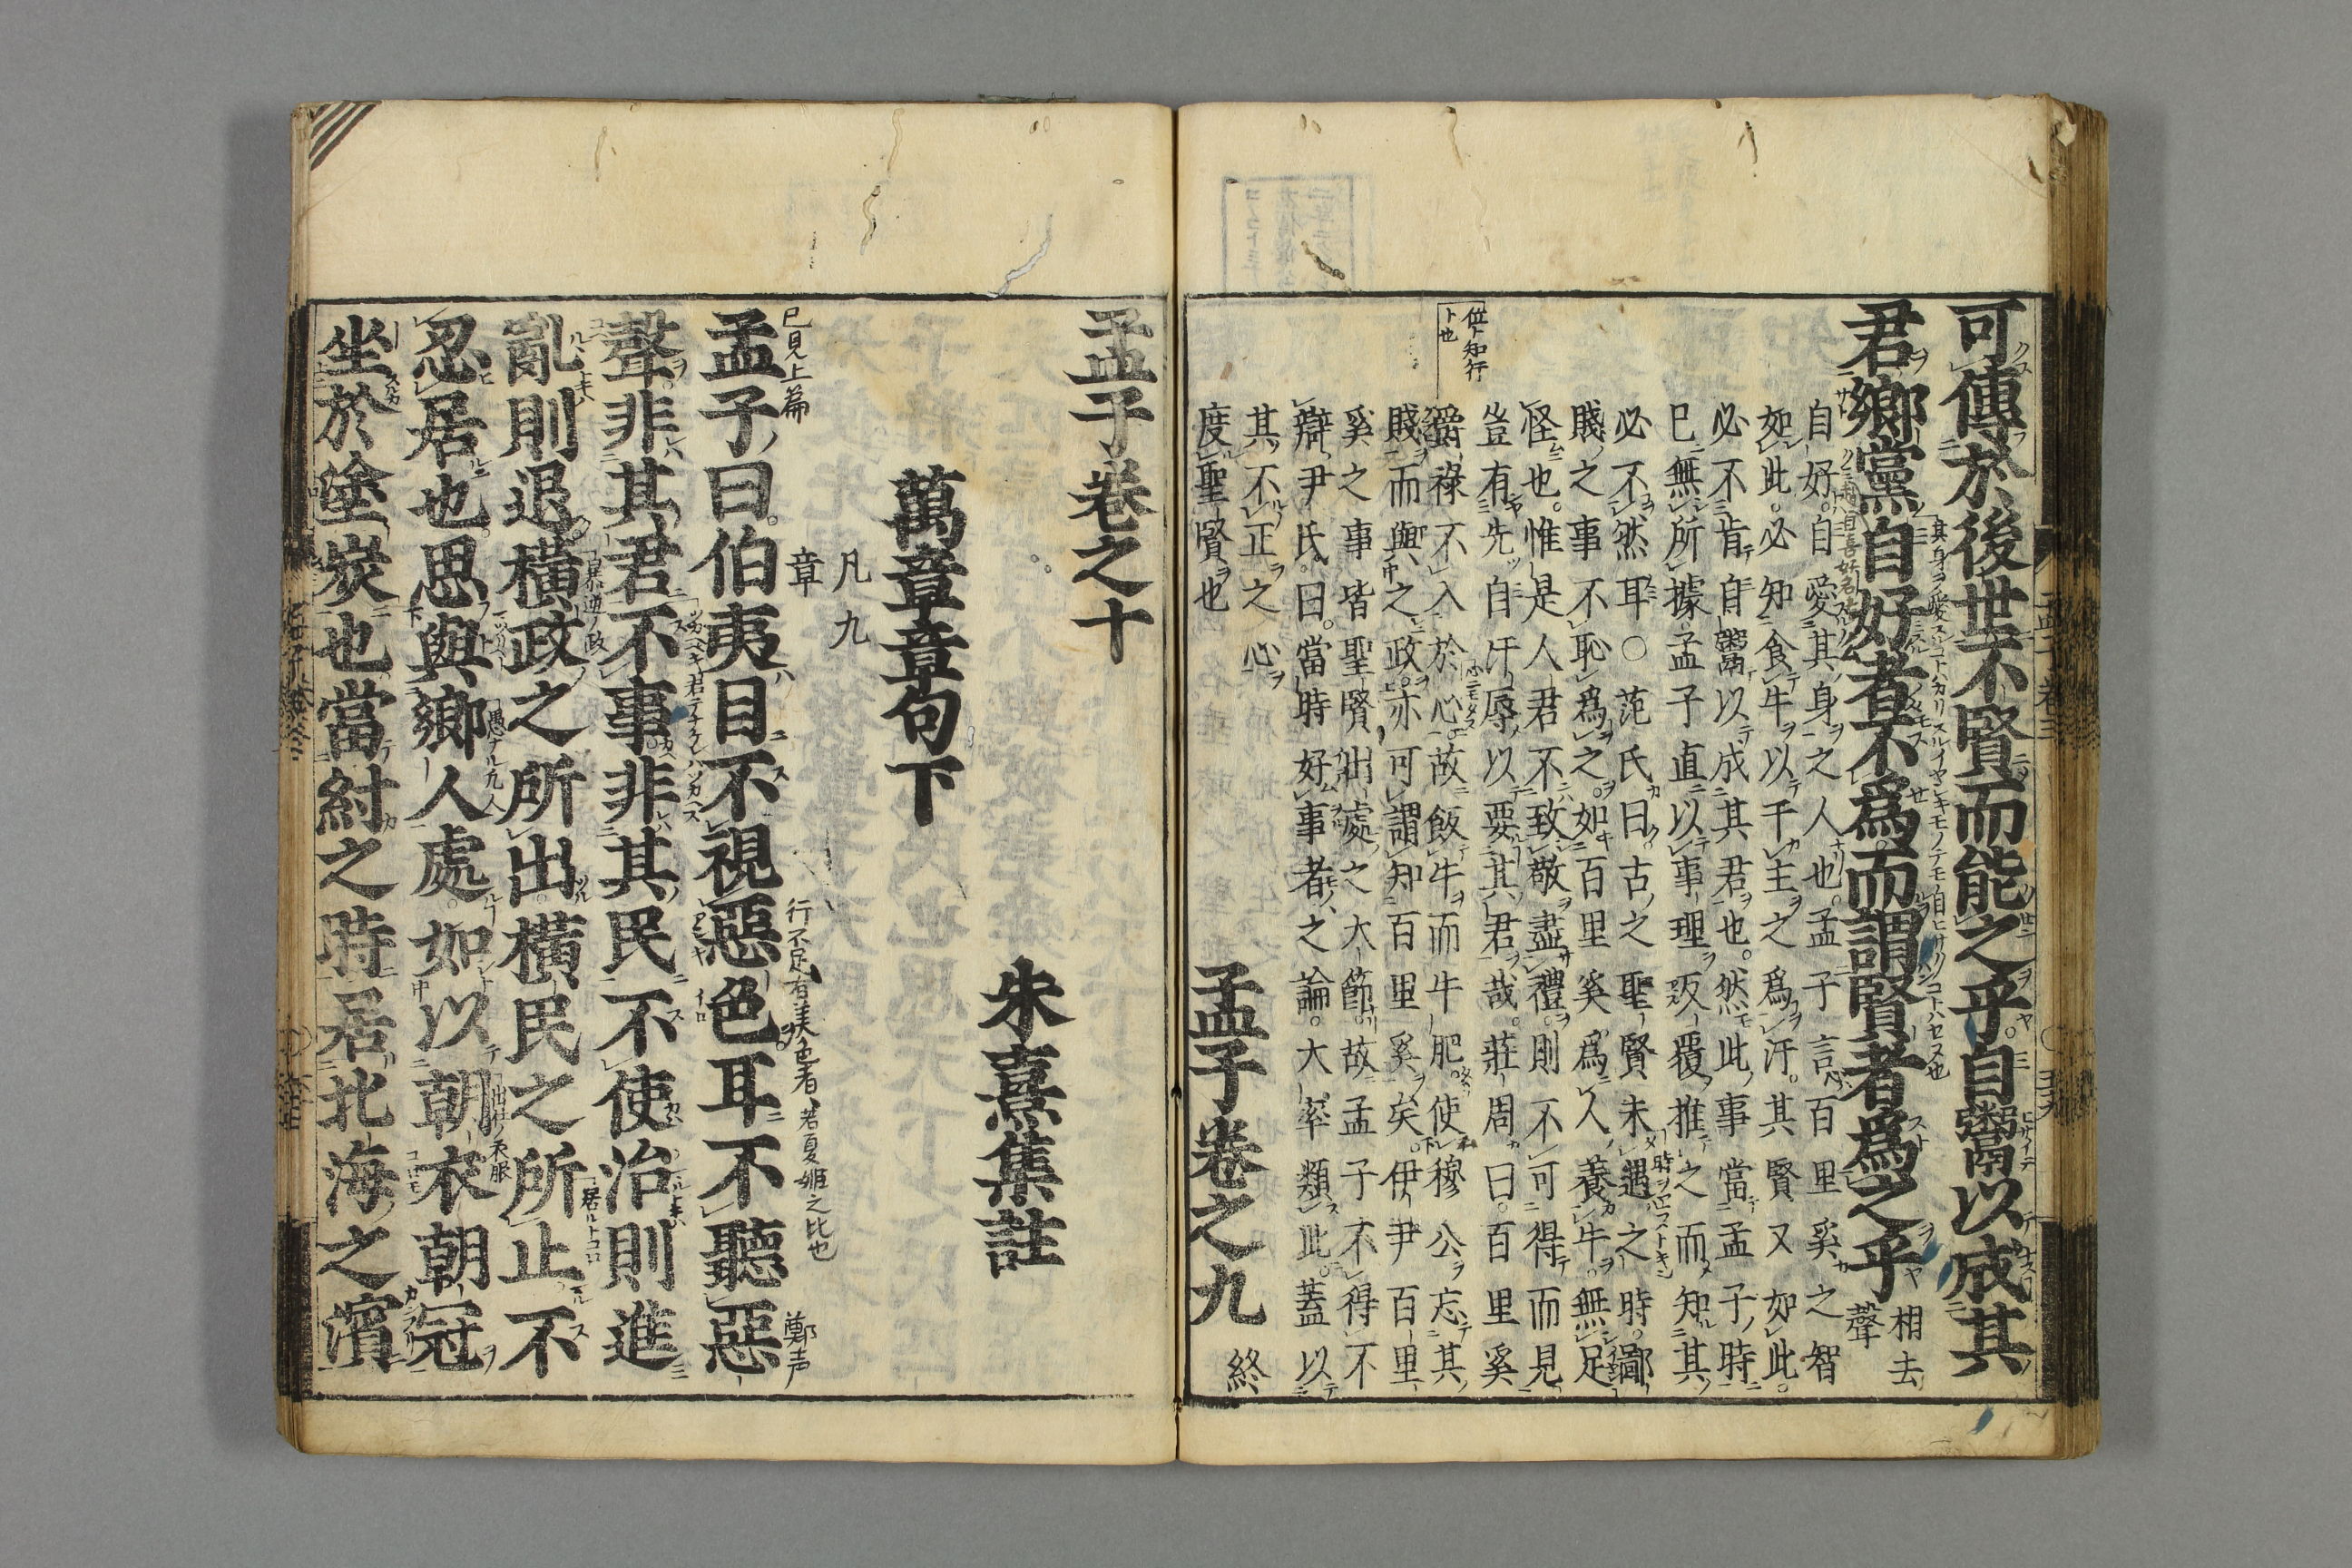 可傳於後世不賢而能之乎自鬻以成其
君鄉黨自好者不爲而謂賢者爲之乎
相去
聲
自好自愛其身之人也孟子言百里奚之智
如此必知食牛以干主之爲汙其賢又如此
必不肯自鬻以成其君也然此事當孟子時
已無所據孟子直以事理反覆推之而知其
必不然耳○范氏曰古之聖賢未遇之時鄙
賤之事不恥爲之如百里奚爲人養牛無足
怪也惟是人君不致敬盡禮則不可得而見
豈有先自汙辱以要其君哉莊周曰百里奚
爵祿不入於心故飯牛而牛肥使穆公忘其
賤而與之政亦可謂知百里奚矣伊尹百里
奚之事皆聖賢出處之大節故孟子不得不
辯尹氏曰當時好事者之論大率類此蓋以
其不正之心
度聖賢也
孟子卷之九
終
孟子卷之十
朱熹集註
萬章章句下
凡九
章
已見上篇
行不足有美色者若夏姬之比也
鄭声
孟子曰伯夷目不視惡色耳不聽惡
聲非其君不事非其民不使治則進
亂則退橫政之所出橫民之所止不
忍居也思與鄉人處如以朝衣朝冠
坐於塗炭也當紂之時居北海之濱